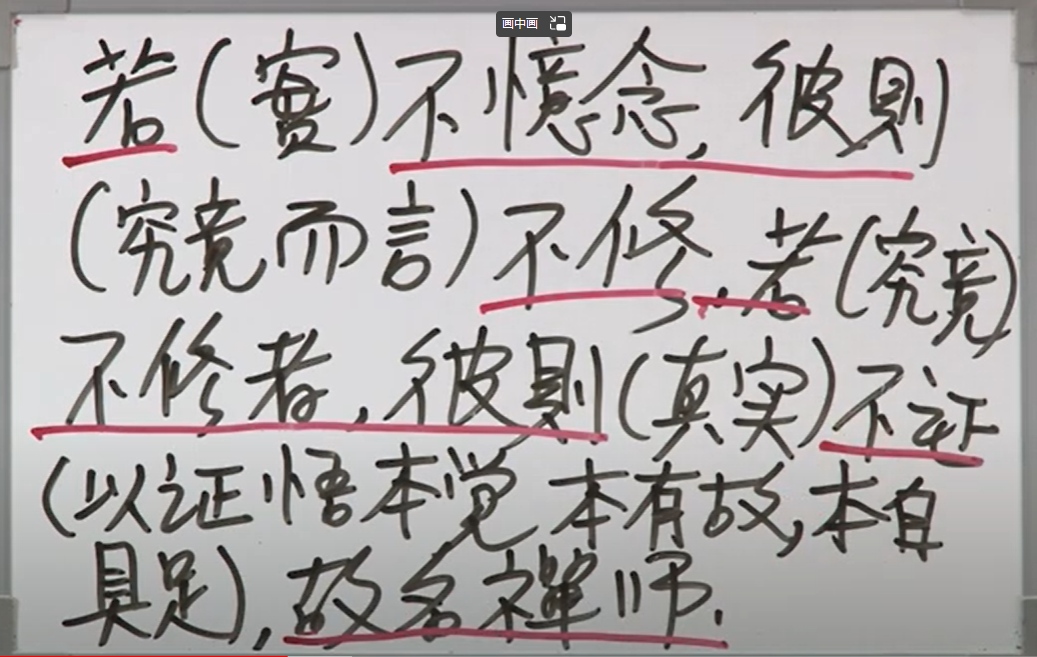 画中画
若(實)不憶念,彼則
(究竟而言)不修,若(究竟)
不修者,彼則(真实)不证
(以证悟本觉本有故,本自
具足),故名禅师.